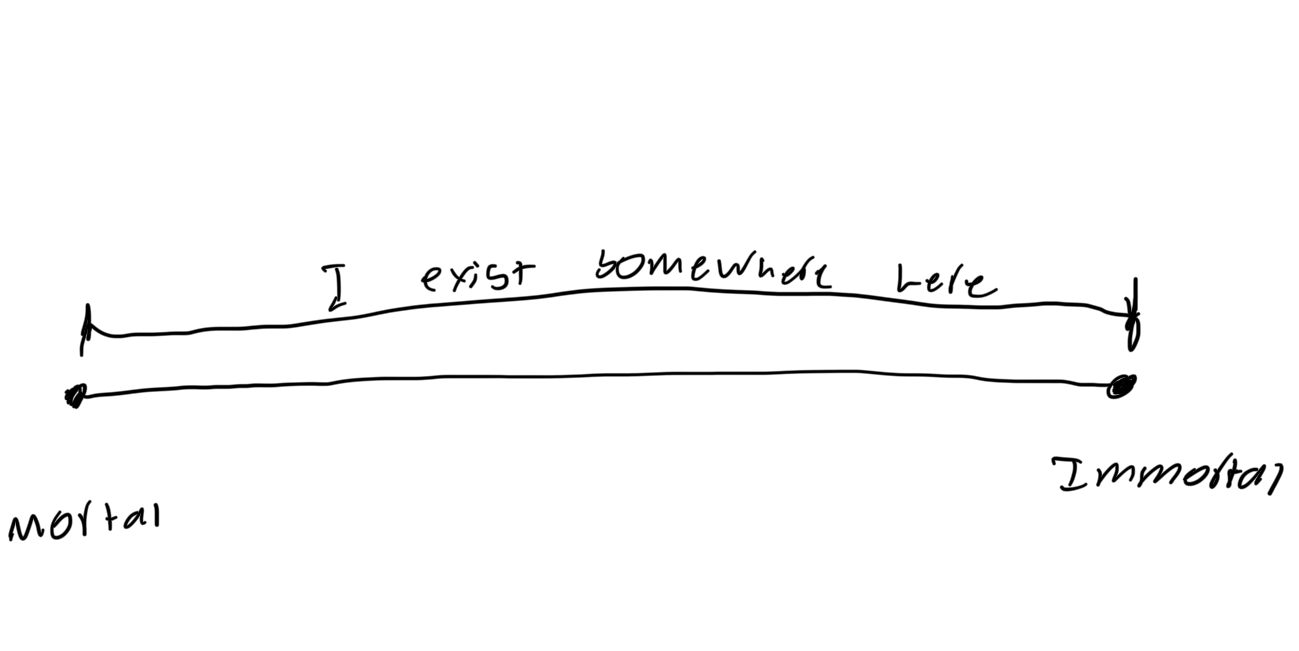 I exist somewhere here
Immortal
mortal